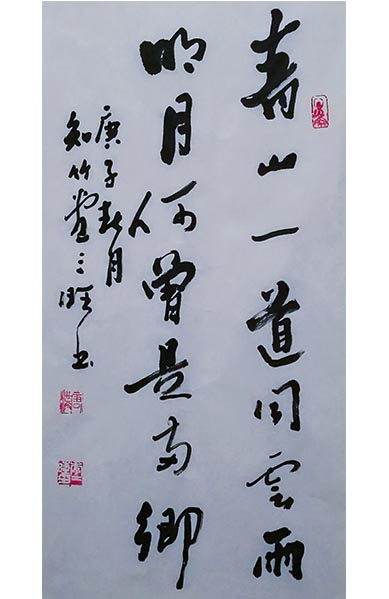 青山一道同雲雨
明月何曾是兩鄉
庚子秋月
知竹堂三旺书